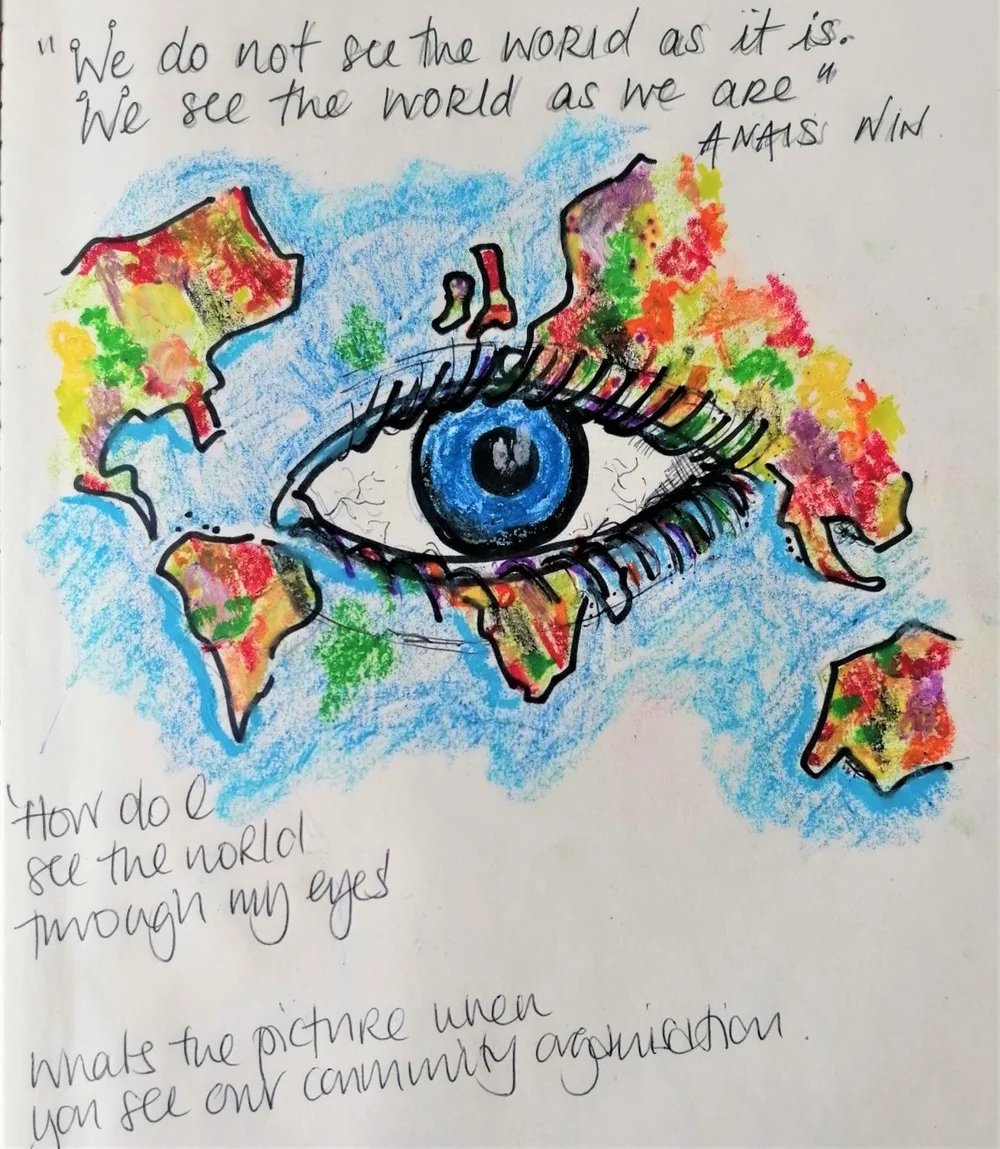 "We do not see the WORLD as it is.
We see the WORLD as we are"
ANAIS NIN.
'How do I
see the world
through my eyes'
Whats the picture when
you see our community organisation.